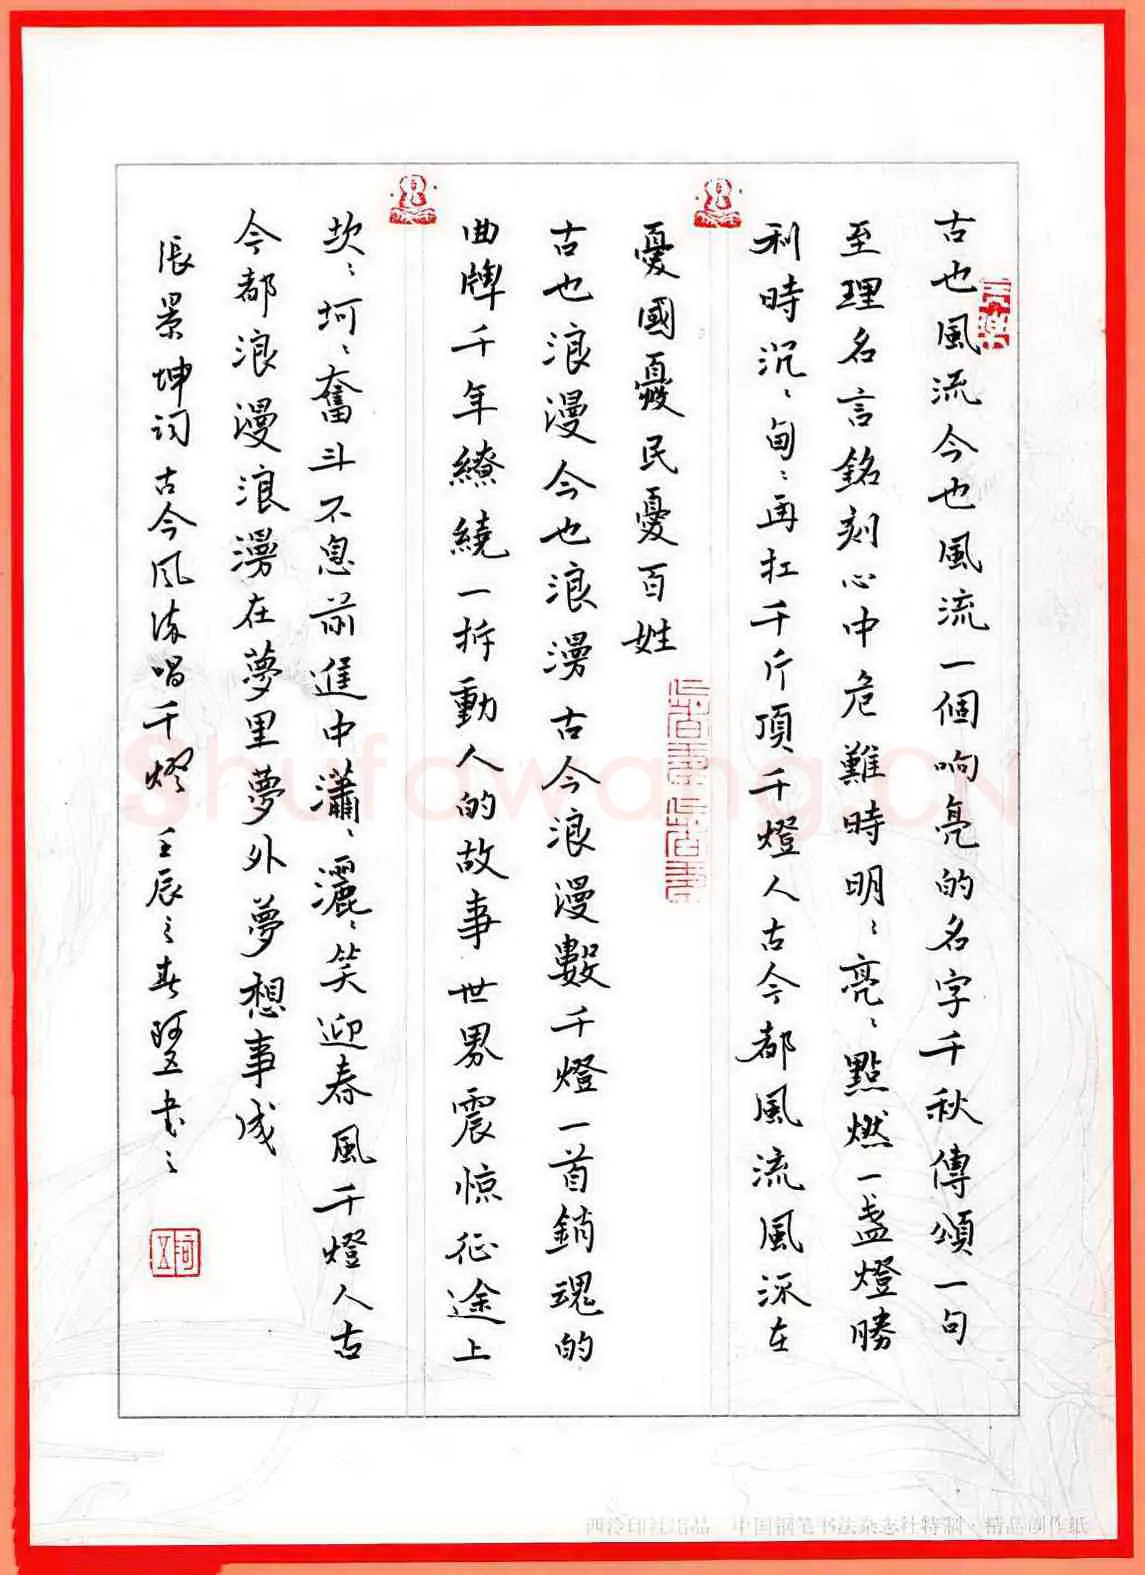 古也風流今也風流一個响亮的名字千秋傳頌一句
至理名言銘刻心中危難時明〻亮〻點燃一盞燈勝
利時沉〻甸〻再扛千斤頂千燈人古今都風流風流在
憂國憂民憂百姓
古也浪漫今也浪漫古今浪漫數千燈一首銷魂的
曲牌千年繚繞一折動人的故事世界震惊征途上
坎〻坷〻奮斗不息前進中瀟〻灑〻笑迎春風千燈人古
今都浪漫浪漫在夢里夢外夢想事成
張景坤詞古今風流唱千燈 壬辰之春阿五書之
阿五
Shufawang.CN
西泠印社出品 中国钢笔书法杂志社特制·精品创作纸